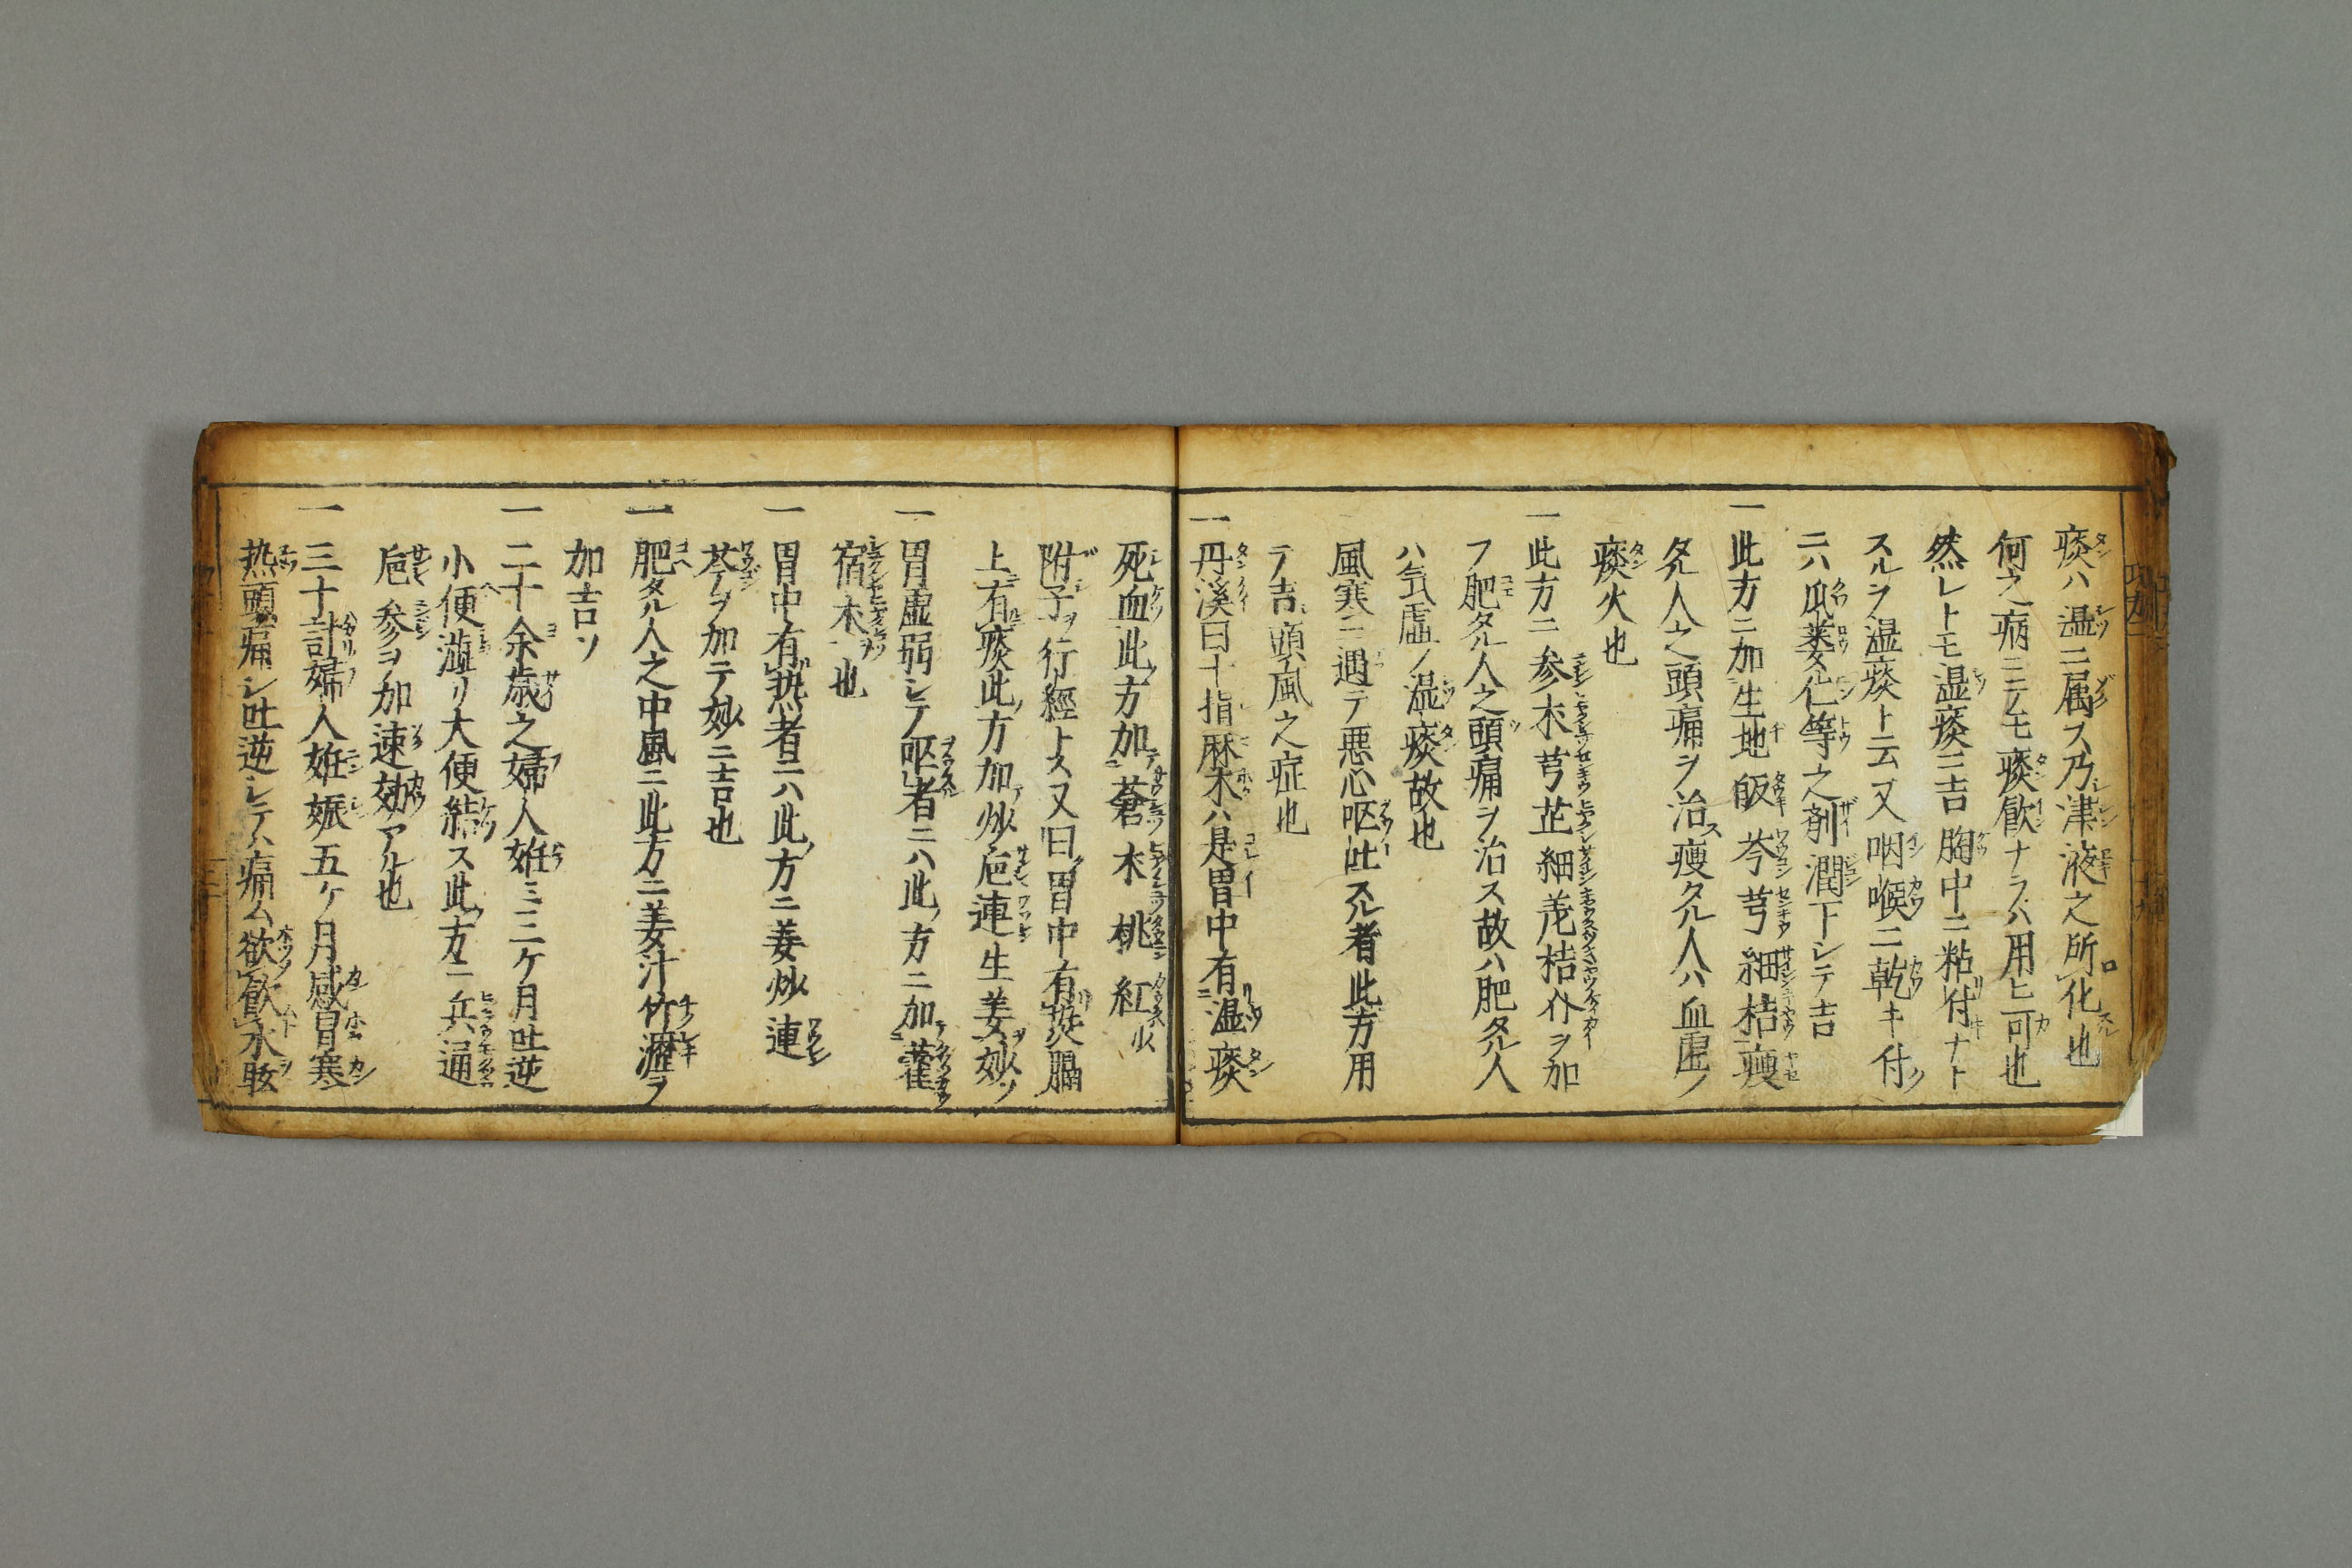 痰ハ湿ニ属ス乃津液之所化也
何之病ニモ痰飲ナラハ用ヒ可也
然レトモ湿痰ニ吉胸中ニ粘付ナト
スルヲ湿痰ト云又咽喉ニ乾キ付
ニハ瓜蔞仁等之剤潤下シテ吉
一此方ニ加生地皈芩芎細桔痩
タル人之頭痛ヲ治ス痩タル人ハ血虚ノ
痰火也
一此方ニ参朮芎芷細羌桔ヲ加
フ肥タル人之頭痛ヲ治ス故ハ肥タル人
ハ気虚ノ湿痰故也
風寒ニ遇テ悪心呕吐スル者此方用
テ吉頭風之症也
一丹溪曰十指麻木ハ是胃中有湿痰
死血此方加蒼朮桃紅少
附子ヲ行經ト又曰胃中有熱膈
上有痰此方加炒巵連生姜妙ソ
一胃虚弱シテ呕者ニハ此方ニ加藿
宿木也
一胃中有熱者ニハ此方ニ姜炒連
芩ヲ加テ妙ニ吉也
一肥タル人之中風ニ此方ニ姜汁竹瀝ヲ
加吉ソ
一二十余歳之婦人姙ミ三ケ月吐逆
小便澁リ大便結ス此方ニ兵通
巵参ヲ加速効アル也
一三十計婦人姙娠五ケ月感冒寒
热頭痛シ吐逆シテ痛ム欲飲水咳